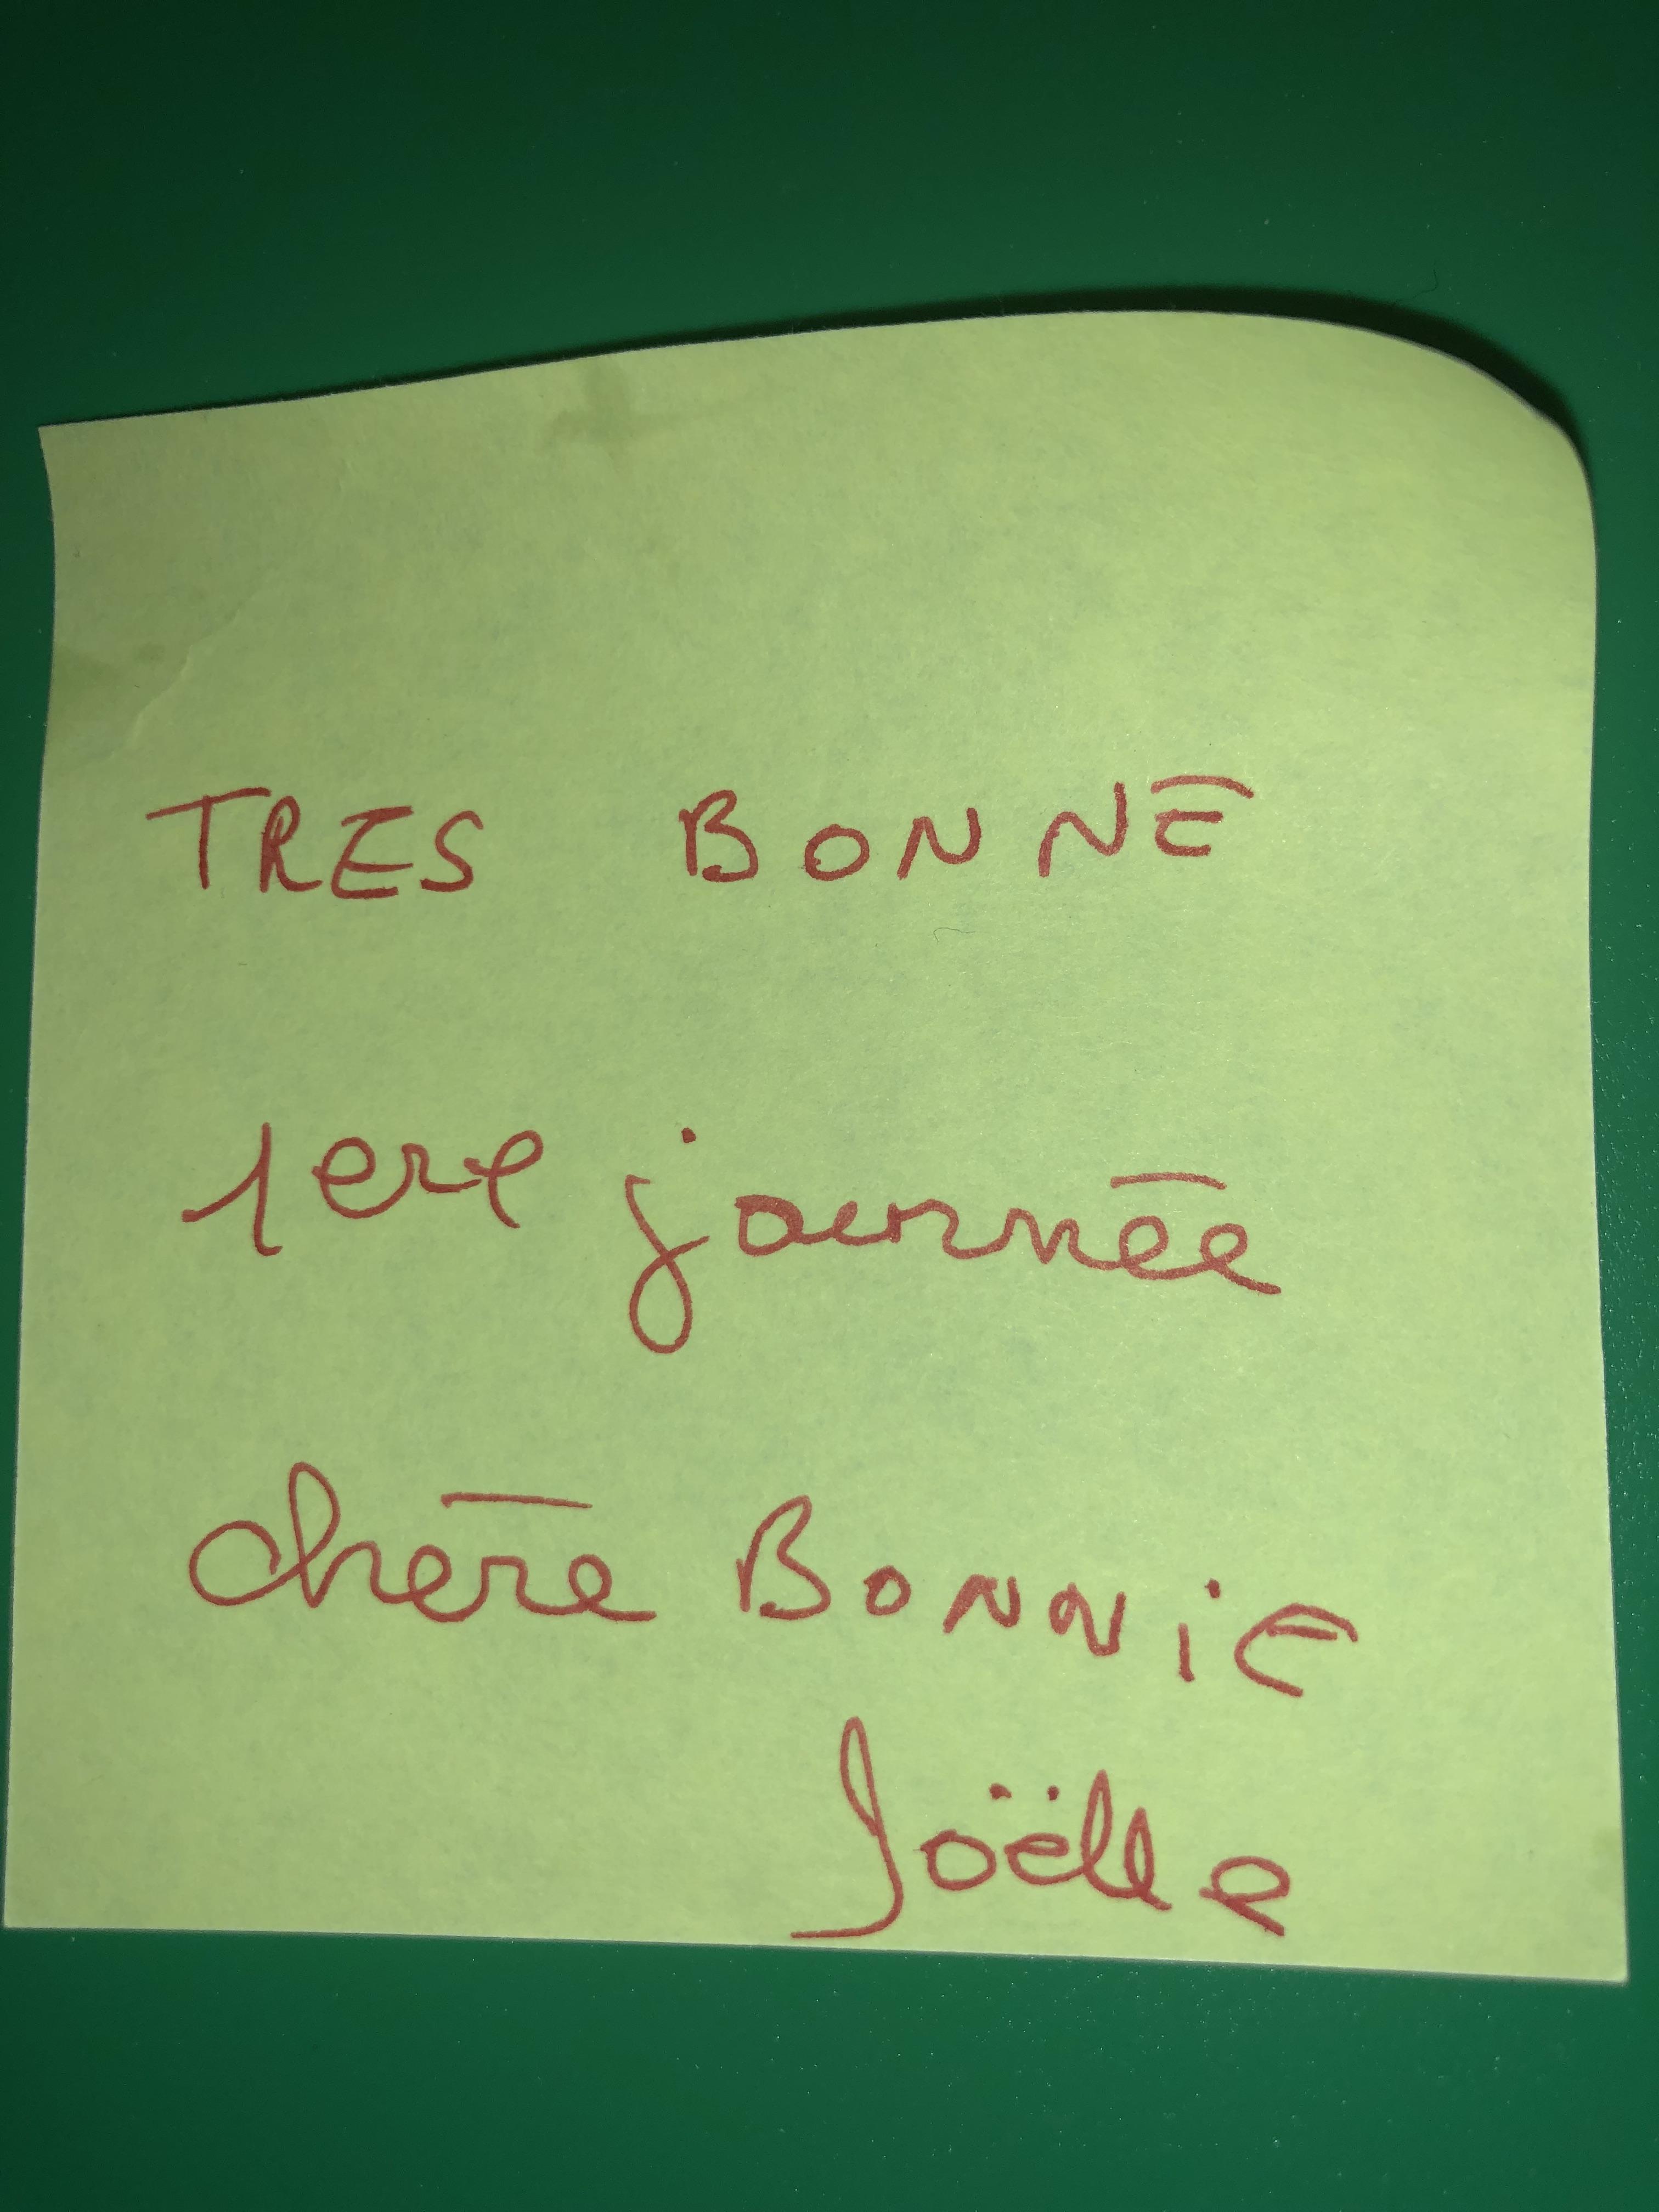 TRES BONNE
1ere journée
chère BONNiE
Joëlle